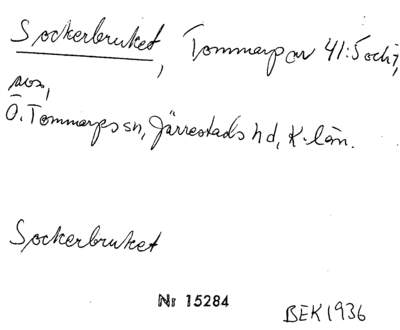 Sockerbruket, Tommarp ar 41:5 och 7,
Ö. Tommarps sn, Järrestads hd, K-län.
Sockerbruket
Nr 15284
BEK 1936